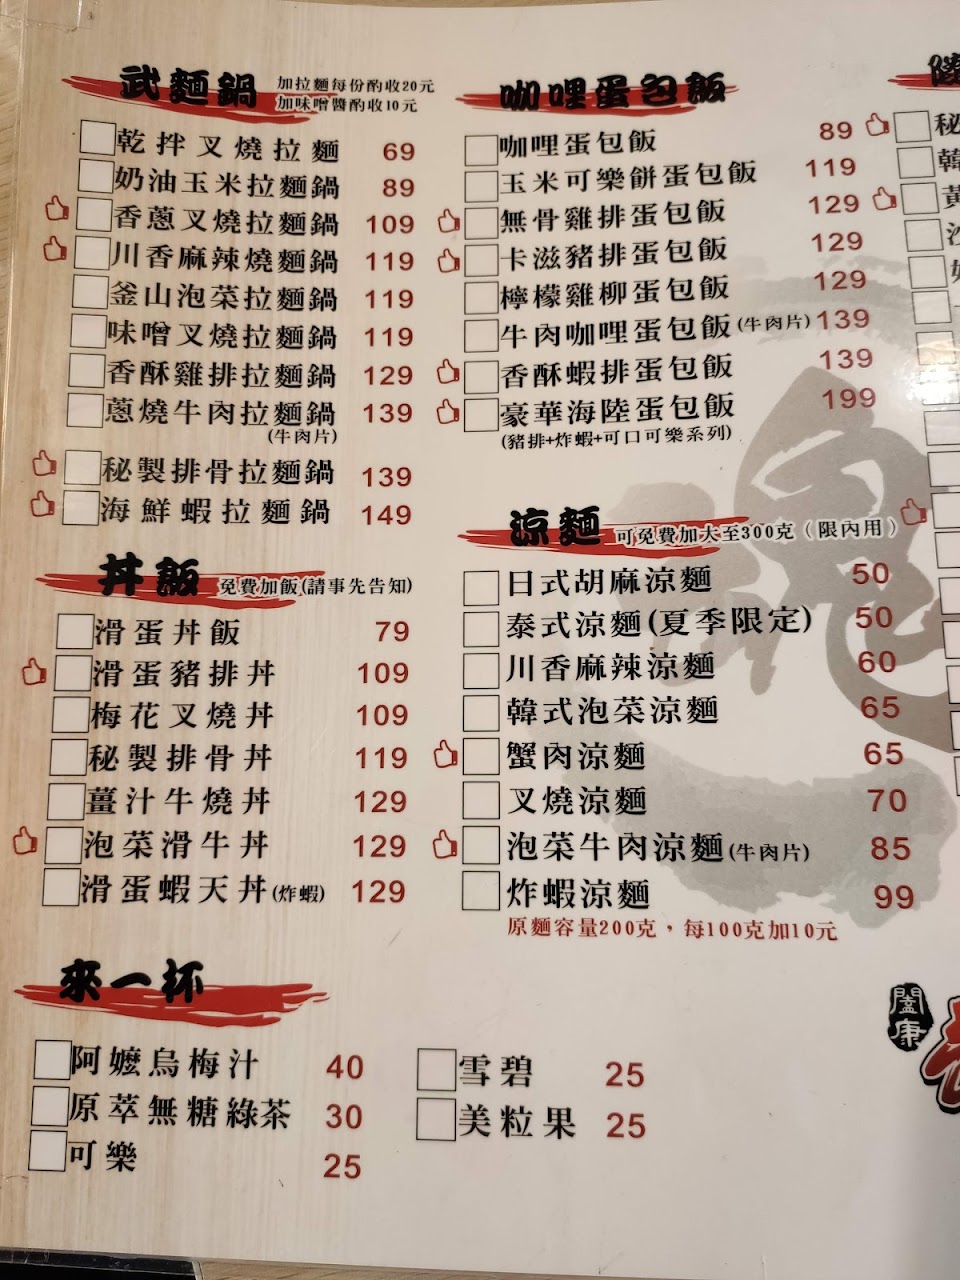 武麵鍋 加拉麵每份酌收20元
加味噌醬酌收10元
乾拌叉燒拉麵 69
奶油玉米拉麵鍋 89
香蔥叉燒拉麵鍋 109
川香麻辣燒麵鍋 119
釜山泡菜拉麵鍋 119
味噌叉燒拉麵鍋 119
香酥雞排拉麵鍋 129
蔥燒牛肉拉麵鍋 139
(牛肉片)
秘製排骨拉麵鍋 139
海鮮蝦拉麵鍋 149
丼飯 免費加飯(請事先告知)
滑蛋丼飯 79
滑蛋豬排丼 109
梅花叉燒丼 109
秘製排骨丼 119
薑汁牛燒丼 129
泡菜滑牛丼 129
滑蛋蝦天丼(炸蝦) 129
來一杯
阿嬤烏梅汁 40
原萃無糖綠茶 30
可樂 25
雪碧 25
美粒果 25
咖哩蛋包飯
咖哩蛋包飯 89
玉米可樂餅蛋包飯 119
無骨雞排蛋包飯 129
卡滋豬排蛋包飯 129
檸檬雞柳蛋包飯 129
牛肉咖哩蛋包飯(牛肉片) 139
香酥蝦排蛋包飯 139
豪華海陸蛋包飯 199
(豬排+炸蝦+可口可樂系列)
涼麵 可免費加大至300克(限內用)
日式胡麻涼麵 50
泰式涼麵(夏季限定) 50
川香麻辣涼麵 60
韓式泡菜涼麵 65
蟹肉涼麵 65
叉燒涼麵 70
泡菜牛肉涼麵(牛肉片) 85
炸蝦涼麵 99
原麵容量200克，每100克加10元
秘
韓
黃
魂
闔康